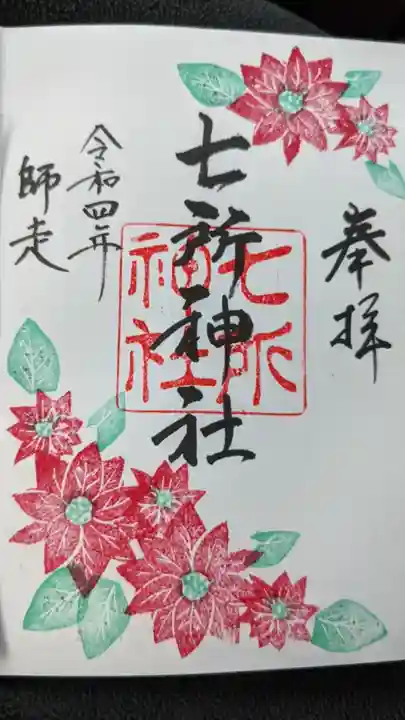 奉拝
七所神社
七所
神社
令和四年
師走